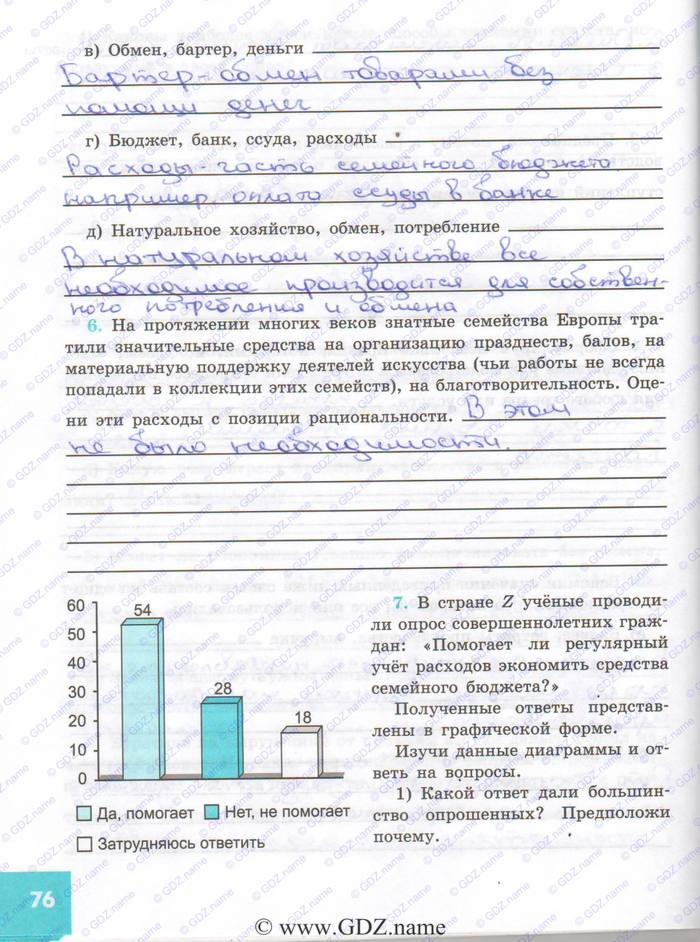 в) Обмен, бартер, деньги
Бартер - обмен товарами без
помощи денег
г) Бюджет, банк, ссуда, расходы
Расходы - часть семейного бюджета
например, оплата ссуды в банке
д) Натуральное хозяйство, обмен, потребление
В натуральном хозяйстве все
необходимое производится для собствен-
ного потребления и обмена
6. На протяжении многих веков знатные семейства Европы тра-
тили значительные средства на организацию празднеств, балов, на
материальную поддержку деятелей искусства (чьи работы не всегда
попадали в коллекции этих семейств), на благотворительность. Оце-
ни эти расходы с позиции рациональности. В этом
не было необходимости.
60
50
40
30
20
10
0
54
28
18
Да, помогает Нет, не помогает
Затрудняюсь ответить
7. В стране Z учёные проводи-
ли опрос совершеннолетних граж-
дан: «Помогает ли регулярный
учёт расходов экономить средства
семейного бюджета?»
Полученные ответы представ-
лены в графической форме.
Изучи данные диаграммы и от-
веть на вопросы.
1) Какой ответ дали большин-
ство опрошенных? Предположи
почему.
76
© www.GDZ.name